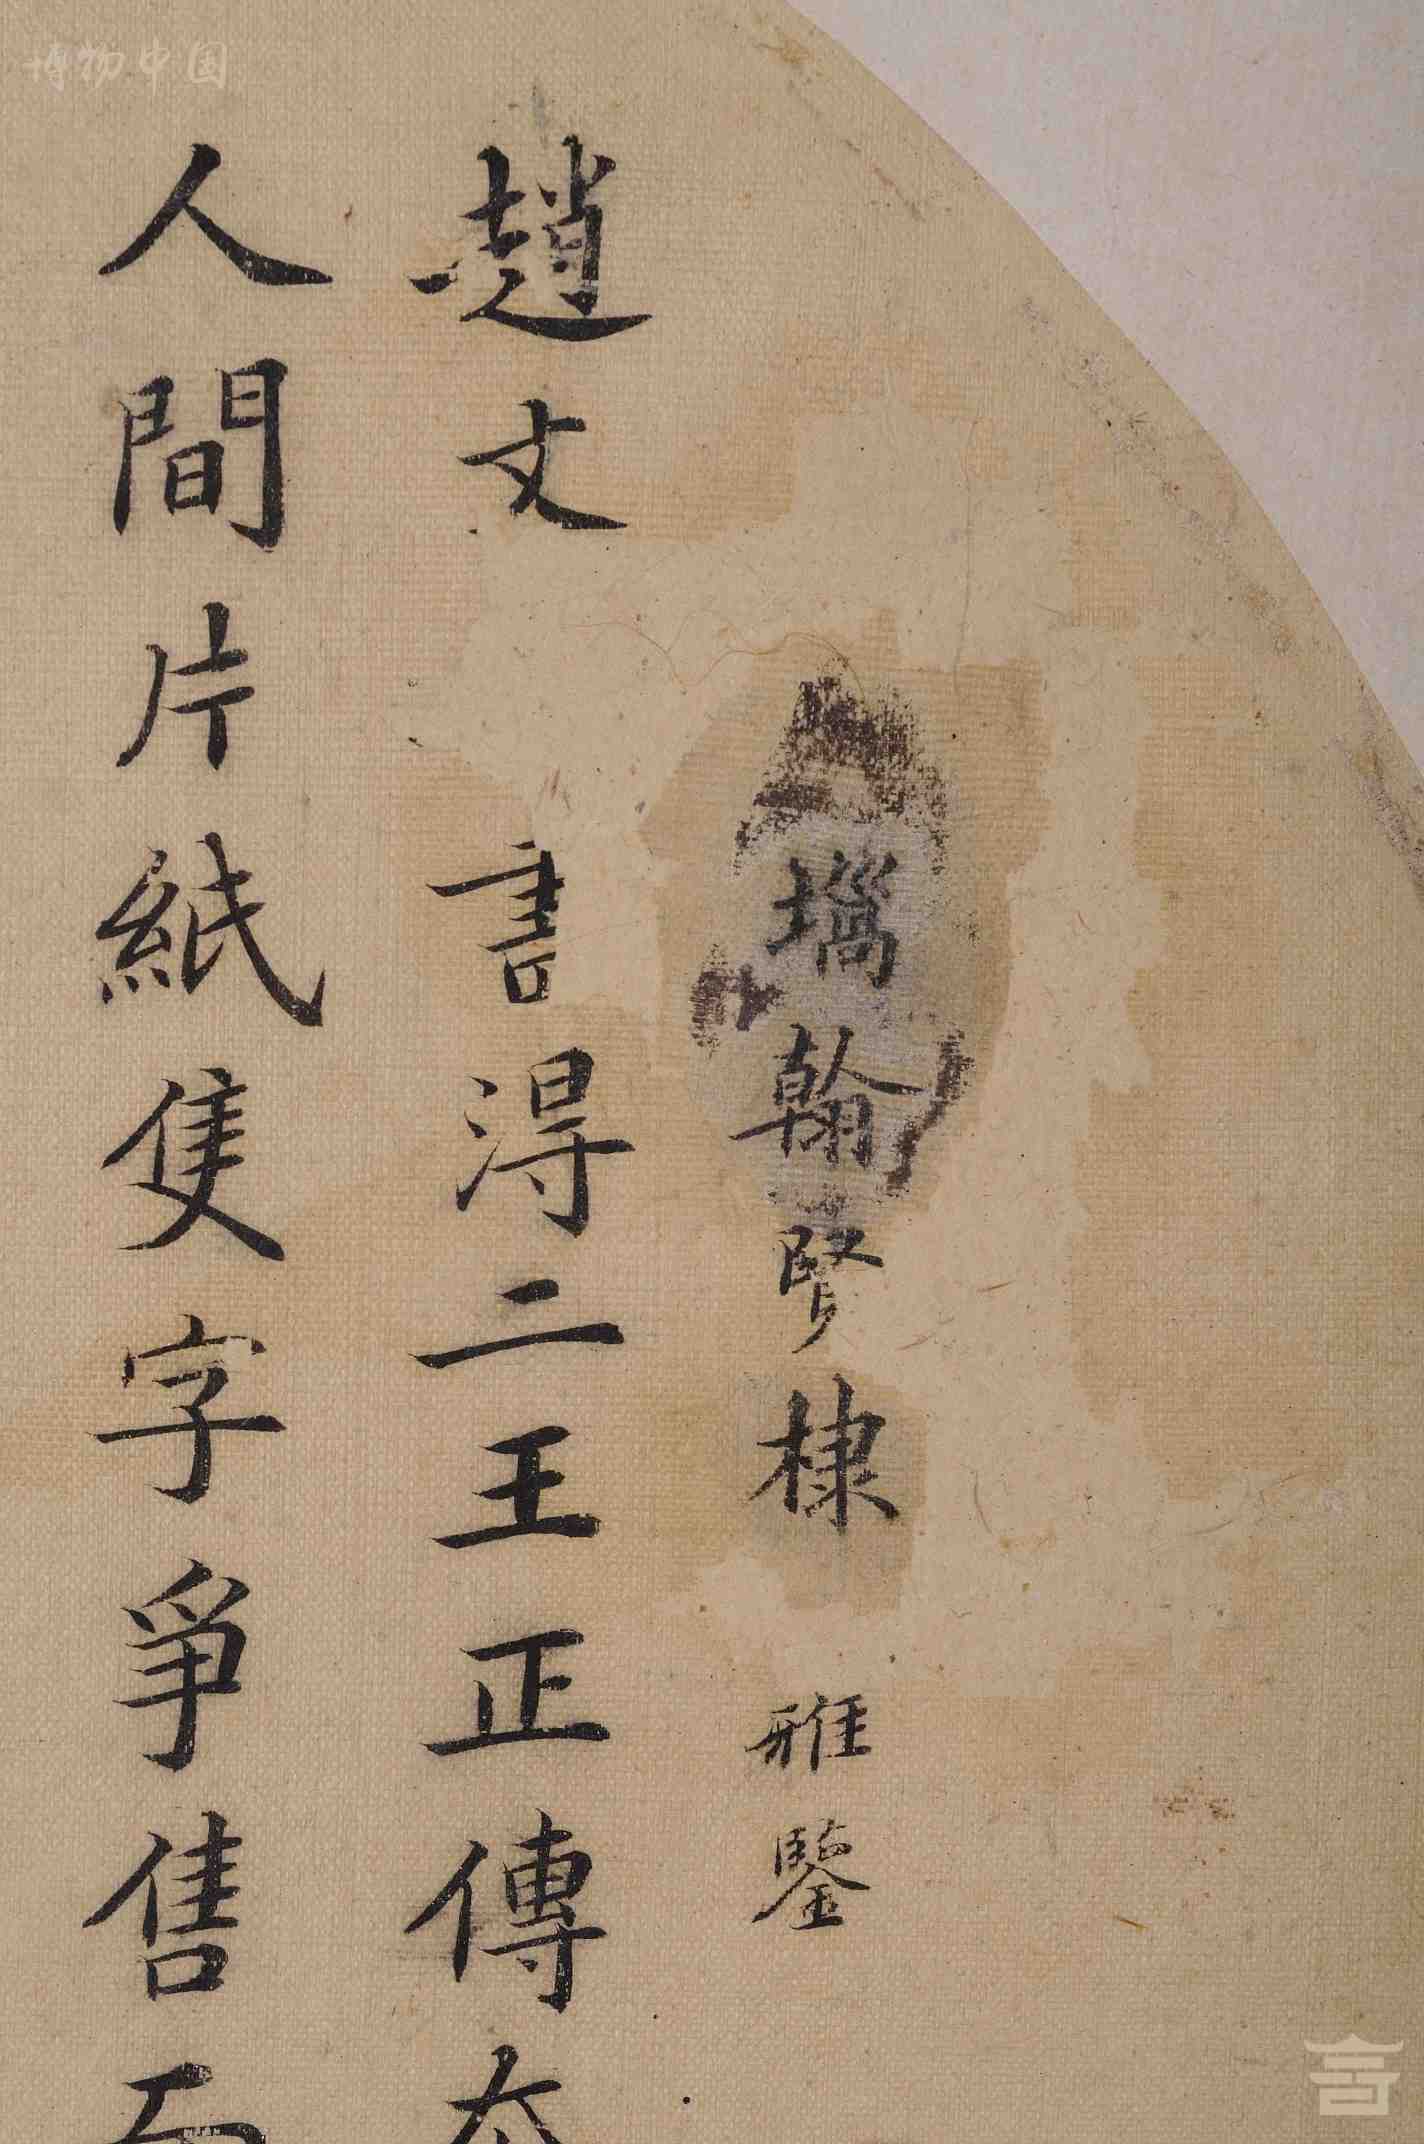 博物中国
翰賢棣 雅鑒
趙文 書得二王正傳
人間片紙隻字爭售